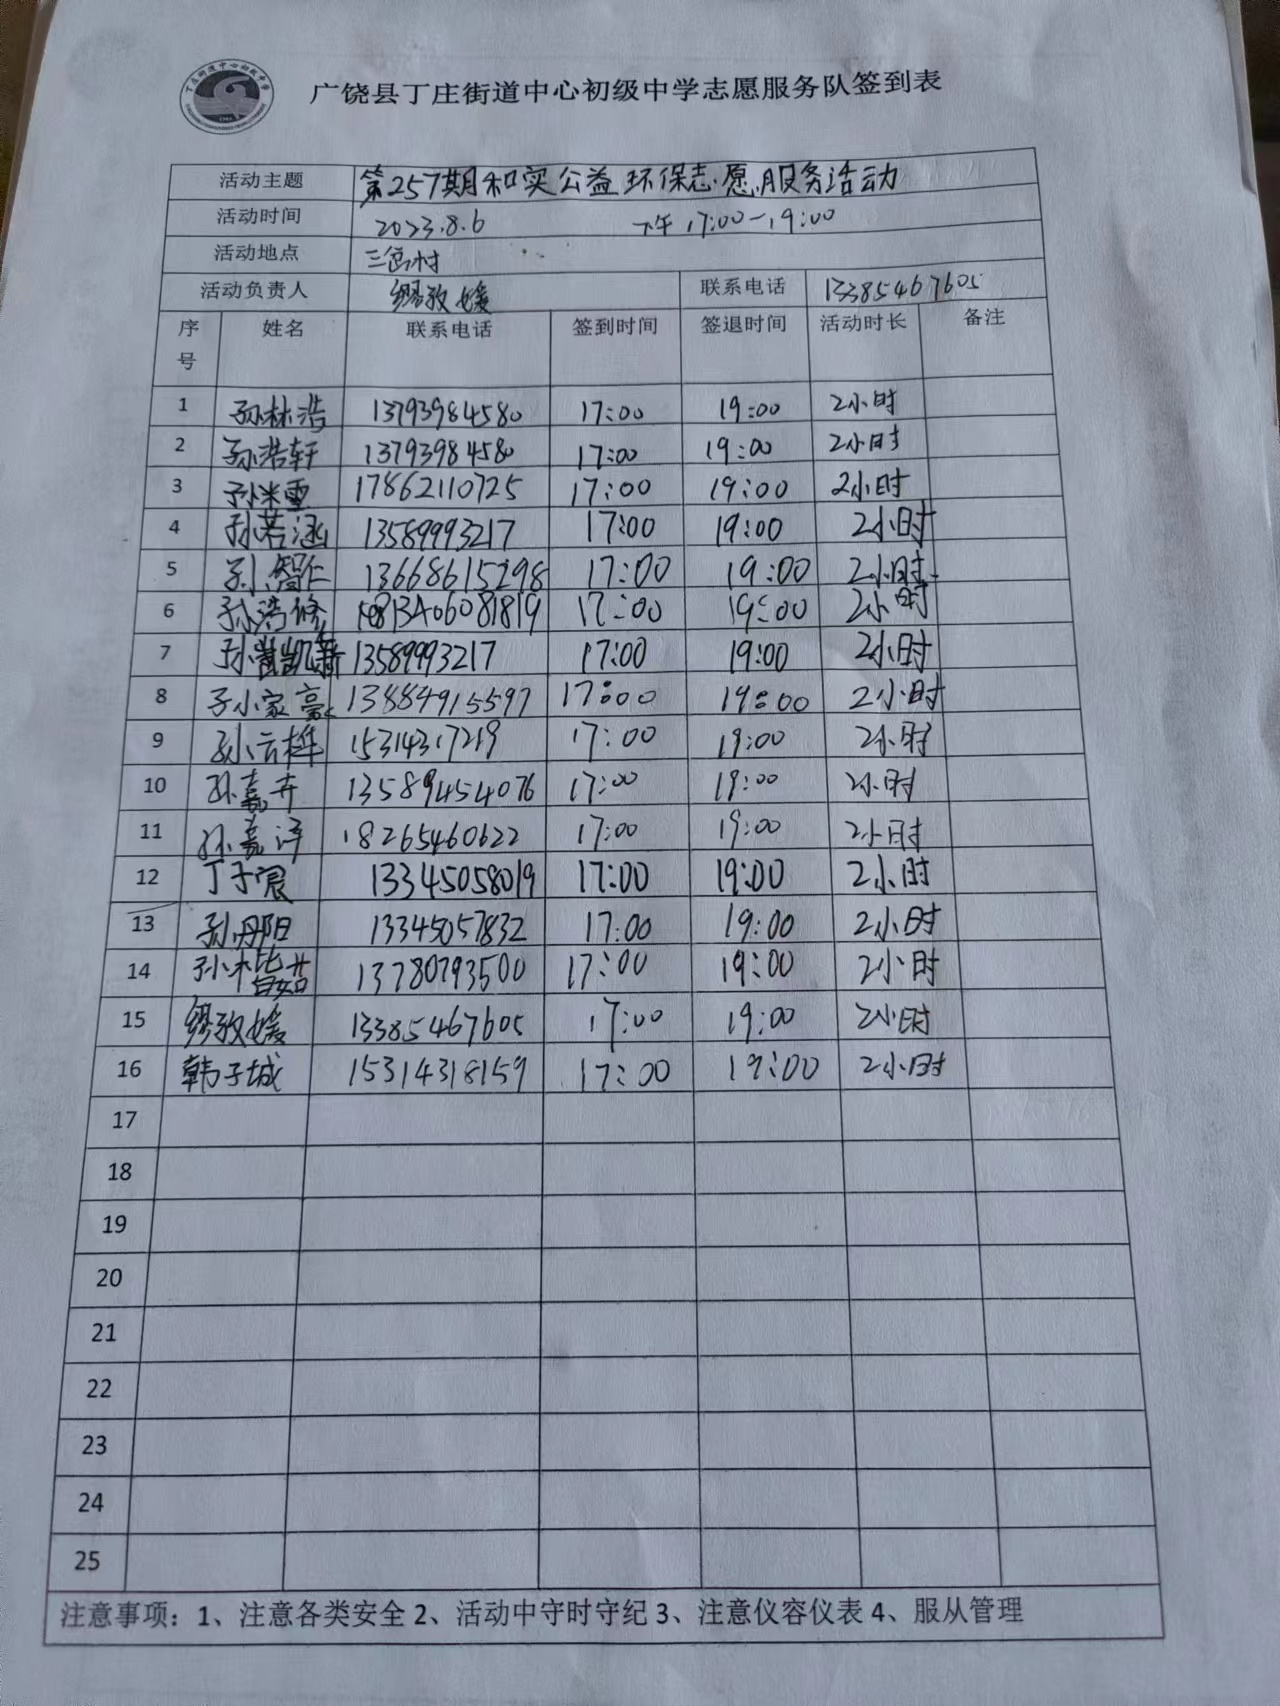 广饶县丁庄街道中心初级中学志愿服务队签到表
活动主题 第257期和实公益环保志愿服务活动
活动时间 2023.8.6 下午 17:00-19:00
活动地点 三岔村
活动负责人 缪孜媛 联系电话 13385467605
序号 姓名 联系电话 签到时间 签退时间 活动时长 备注
1 孙林浩 13793984580 17:00 19:00 2小时
2 孙浩轩 13793984580 17:00 19:00 2小时
3 孙米雪 17862110725 17:00 19:00 2小时
4 孙若涵 13589993217 17:00 19:00 2小时
5 孙智仁 13668615298 17:00 19:00 2小时
6 孙浩修 13406081819 17:00 19:00 2小时
7 孙凯新 13589993217 17:00 19:00 2小时
8 孙家豪 13884915597 17:00 19:00 2小时
9 孙云桦 15314317219 17:00 19:00 2小时
10 孙嘉卉 13589454076 17:00 19:00 2小时
11 孙嘉泽 18265460622 17:00 19:00 2小时
12 丁子宸 13345058019 17:00 19:00 2小时
13 孙丹阳 13345057832 17:00 19:00 2小时
14 孙楷茹 13780793500 17:00 19:00 2小时
15 缪孜媛 13385467605 17:00 19:00 2小时
16 韩子城 15314318159 17:00 19:00 2小时
17
18
19
20
21
22
23
24
25
注意事项：1、注意各类安全 2、活动中守时守纪 3、注意仪容仪表 4、服从管理